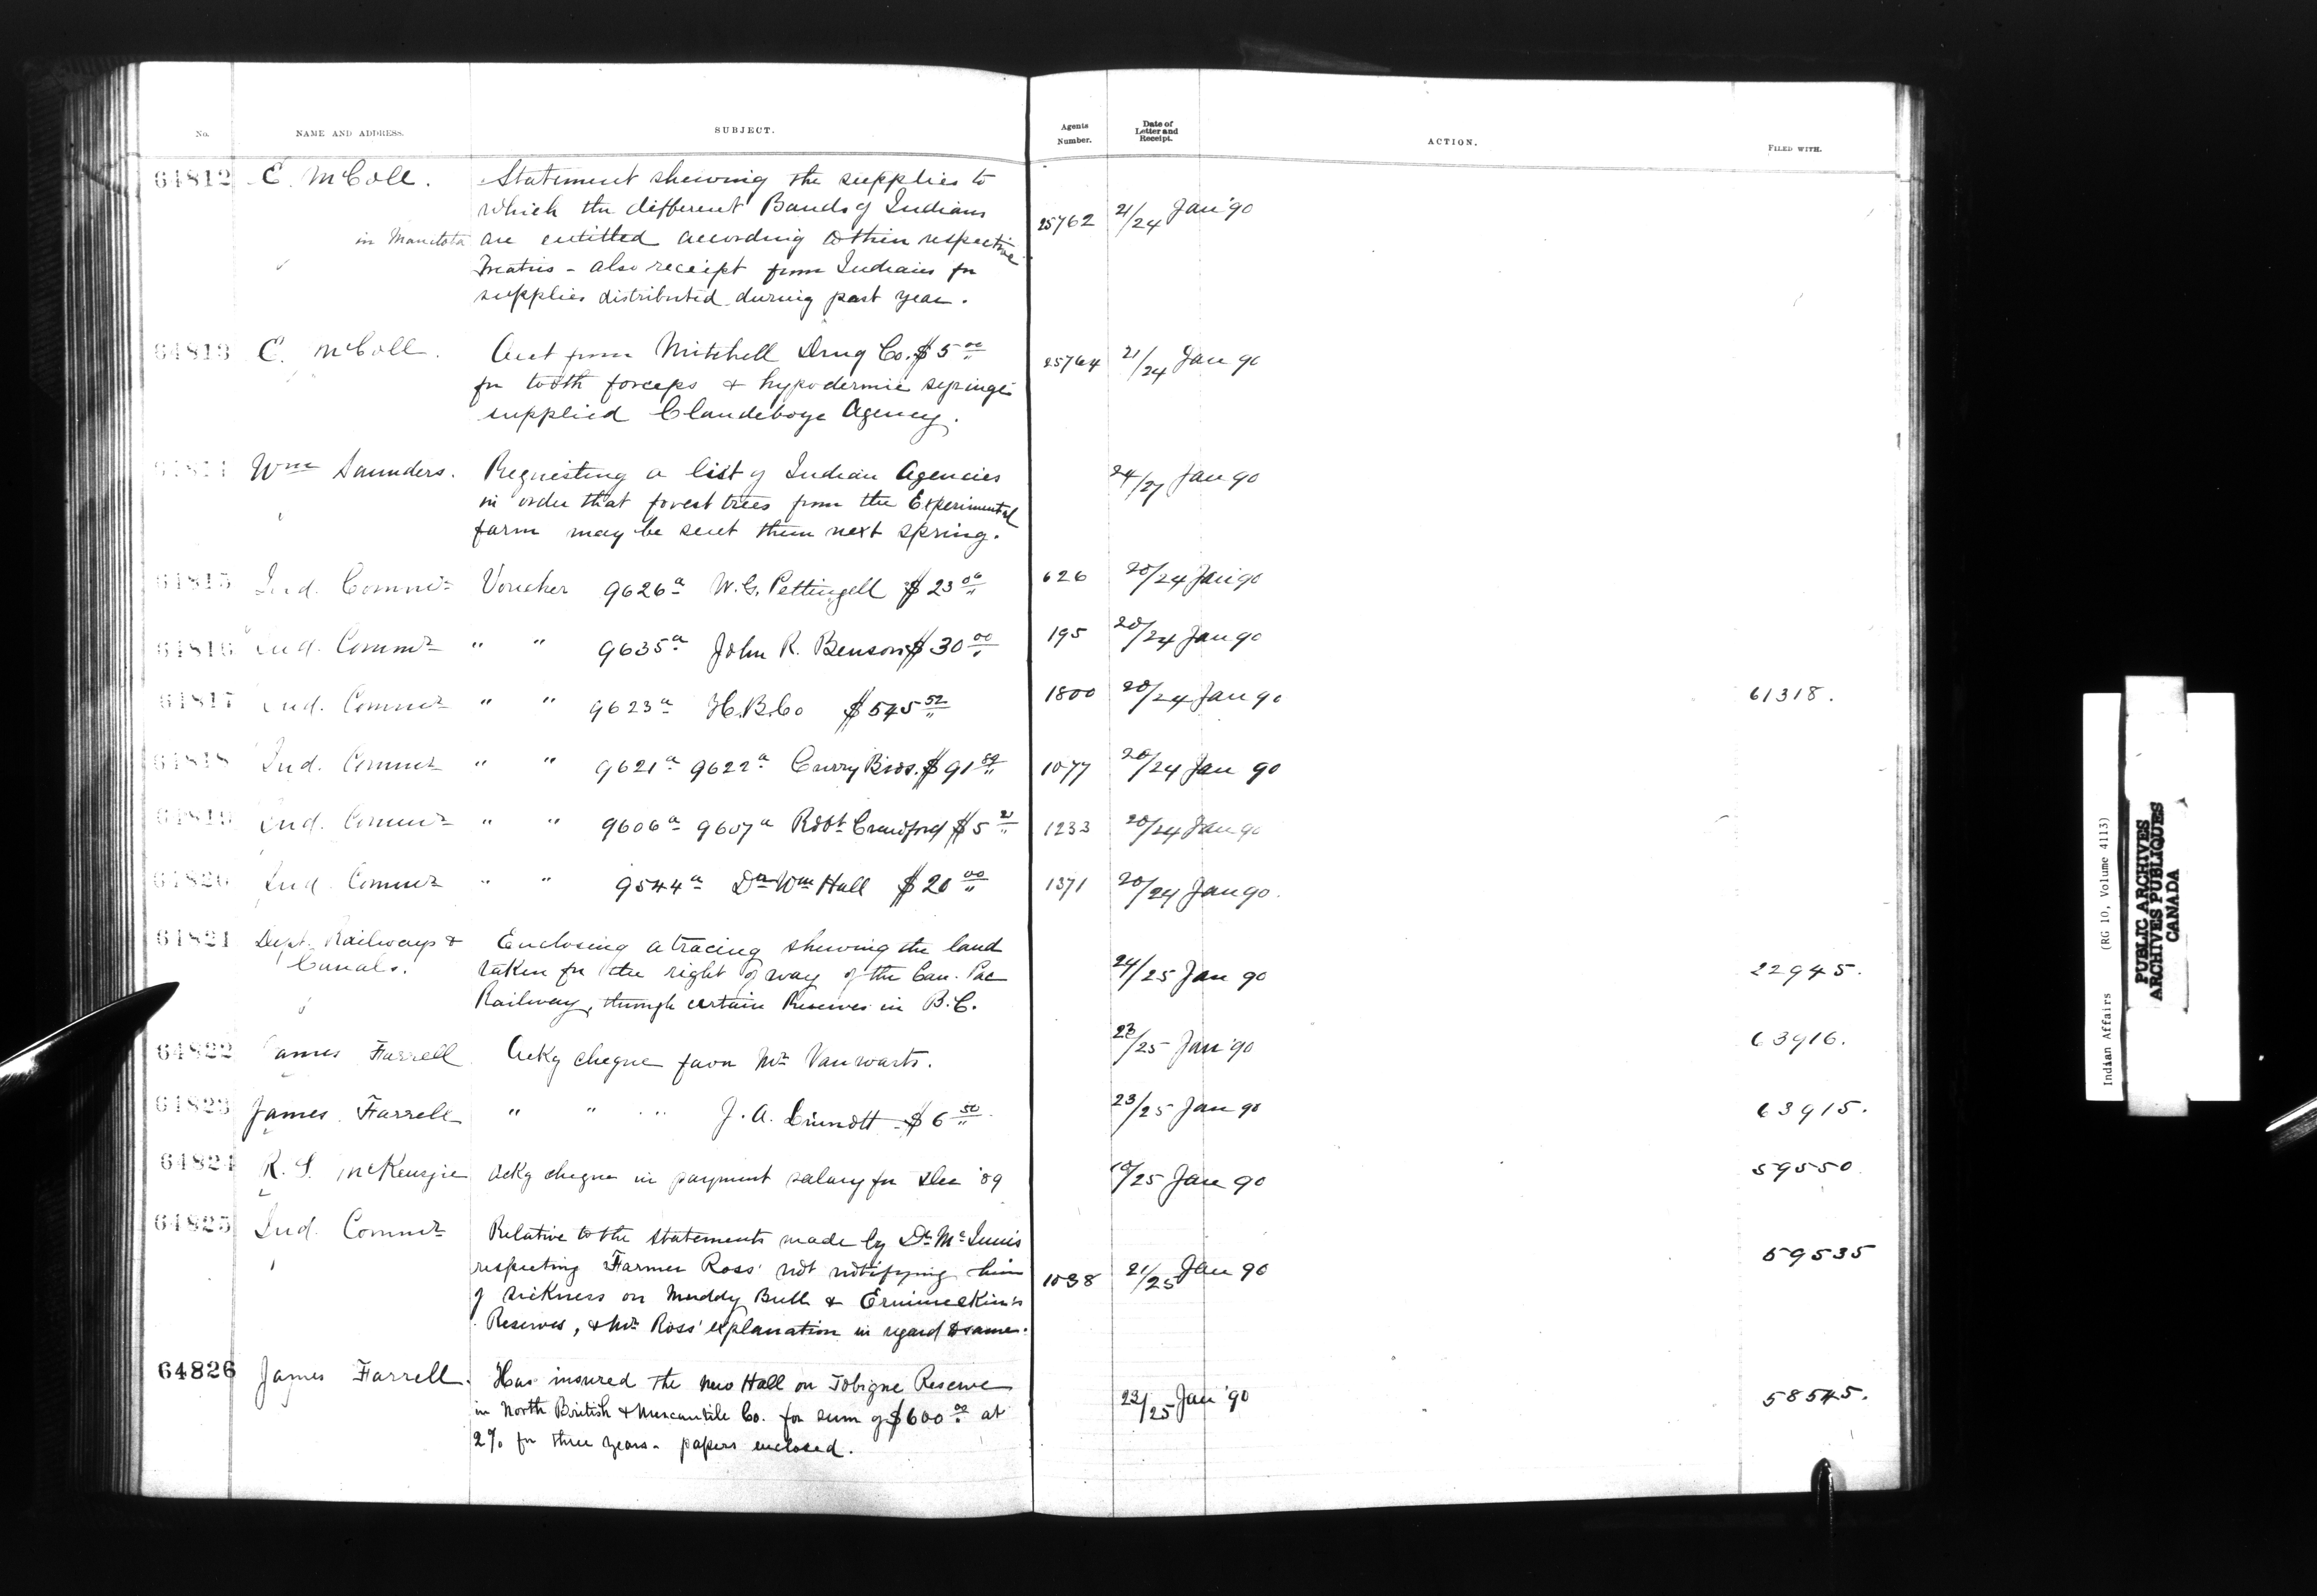 No. NAME AND ADDRESS. SUBJECT. Agents Number. Date of Letter and Receipt. ACTION. FILED WITH.
64812 E. McColl. Statement shewing the supplies to
which the different Bands of Indians 25762 21/24 Jan '90
in Manitoba are entitled according to their respective
Treaties - also receipt from Indians for
supplies distributed during past year.
64813 E. McColl. Acct from Mitchell Drug Co. $5 00 25764 21/24 Jan 90
for tooth forceps & hypodermic syringe
supplied Clandeboye Agency.
64814 Wm Saunders. Requesting a list of Indian Agencies 24/27 Jan 90
in order that forest trees from the Experimental
farm may be sent them next spring.
64815 Ind. Commr Voucher 9626a W.G. Pettingell $23 06 626 20/24 Jan 90
64816 Ind. Commr " " 9635a John R. Benson $30 00 195 20/24 Jan 90
64817 Ind. Commr " " 9623a H.B.Co $545 52 1800 20/24 Jan 90 61318.
64818 Ind. Commr " " 9621a 9622a Curry Bros. $91 1077 20/24 Jan 90
64819 Ind. Commr " " 9606a 9607a Robt Crawford $5 21 1233 20/24 Jan 90
64820 Ind. Commr " " 9544a Dr Wm Hall $20 00 1371 20/24 Jan 90.
64821 Dept. Railways & Canals. Enclosing a tracing shewing the land
taken for the right of way of the Can. Pac 24/25 Jan 90 22945.
Railway, through certain Reserves in B.C.
64822 James Farrell Ackg cheque favor Mr Vanwarts. 23/25 Jan '90 63916.
64823 James Farrell " " " J. A. $6 50 23/25 Jan 90 63915.
64824 R. S. McKenzie Ackg cheque in payment salary for Dec '89 18/25 Jan 90 59550
64825 Ind. Commr Relative to the statements made by Dr McInnis 59535
respecting Farmer Ross' not notifying him 1038 21/25 Jan 90
of sickness on Muddy Bull & Ermineskin's
Reserves, & Mr Ross' explanation in regard to same.
64826 James Farrell. Has insured the new Hall on Tobique Reserve
in North British & Mercantile Co. for sum of $600 00 at 23/25 Jan '90 58545.
2% for three years - papers enclosed.
Indian Affairs (RG 10, Volume 4113)
PUBLIC ARCHIVES
ARCHIVES PUBLIQUES
CANADA